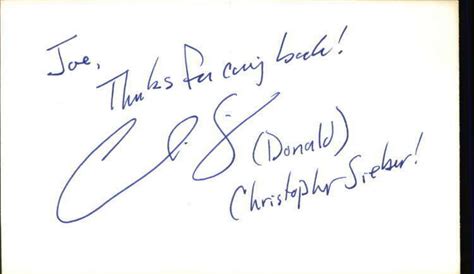 Joe,
Thanks for coming back!
(Donald)
Christopher Sieber!